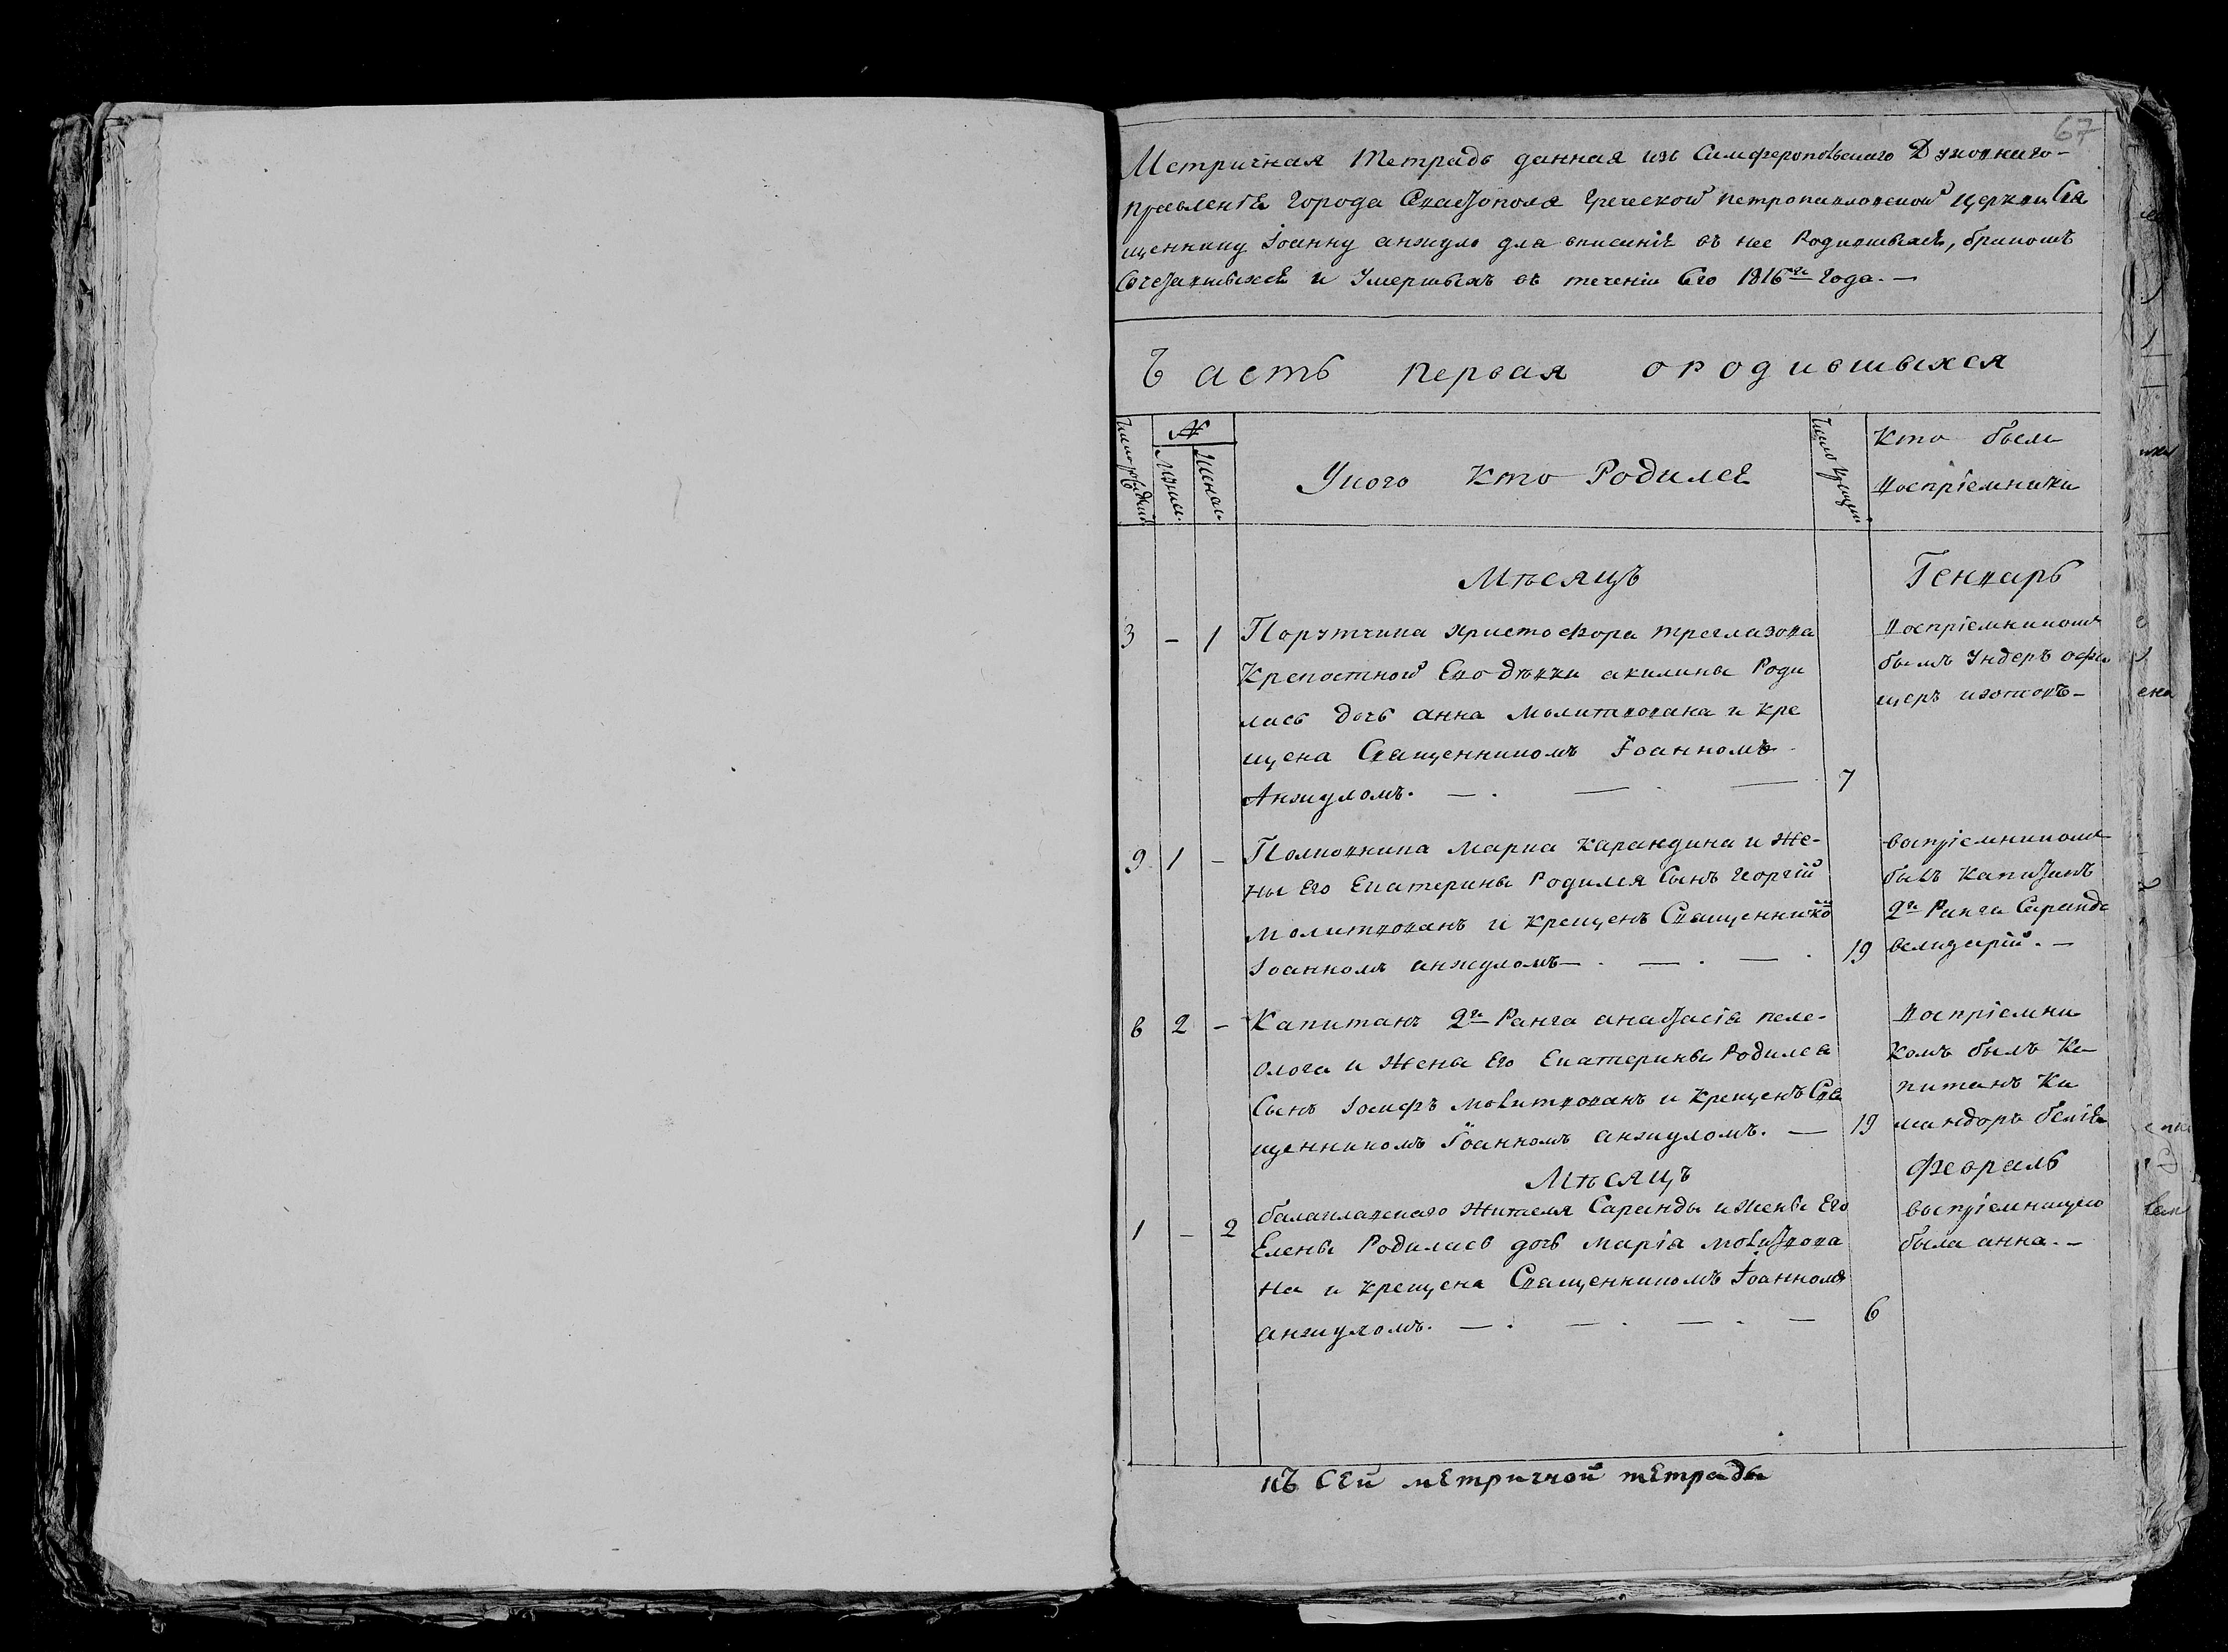 67
Метричная тетрадь данная изъ Симферопольскаго Духовнаго
правленія города Севастополя греческой петропавловской церкви Свя
щеннику Іоанну анжулу для вписанія въ нее Родившыхся, бракомъ
Сочетавшыхся и Умершыхъ въ теченіи Сего 1816го года.—
Часть первая ородившыхся
Число рождений
№
Мужеск.
Женск.
Укого Кто Родился
Число крещен.
Кто были
Воспріемники
Мѣсяцъ
Генварь
3 – 1 Порутчика Христофора треглазова
Крепостной Его дѣвки акилины Роди
лась дочь анна Молитвована и кре
щена Священникомъ Іоанномъ
Анжуломъ. —. — . — 7
Воспріемникомъ
былъ Ундеръ офи
церъ изотовъ—
9 1 – Полковника Марка Карандина и Же-
ны Его Екатерины Родился Сынъ Георгій
Молитвованъ и крещенъ Священнико
Іоанномъ анжуломъ— . — . — . 19
воспріемникомъ
былъ Капитанъ
2го Ранга Саранда
велизарій.—
6 2 – Капитанъ 2го Ранга анастасія пеле-
олога и Жены Его Екатерины Родился
Сынъ Іосифъ Молитвованъ и Крещенъ Свя
щенникомъ Іоанномъ анжуломъ. — 19
Воспріемни
комъ былъ Ка
питанъ Ка
мандоръ белія
Мѣсяцъ
Февраль
1 – 2 балаклавскаго Жителя Саранды и жены Его
Елены Родилась дочь Марія Молитвова
На и крещена Священникомъ Іоанномъ
анжуломъ. — . — . — . — 6
воспріемницею
была анна.—
къ СЕй мЕтричной тЕтради